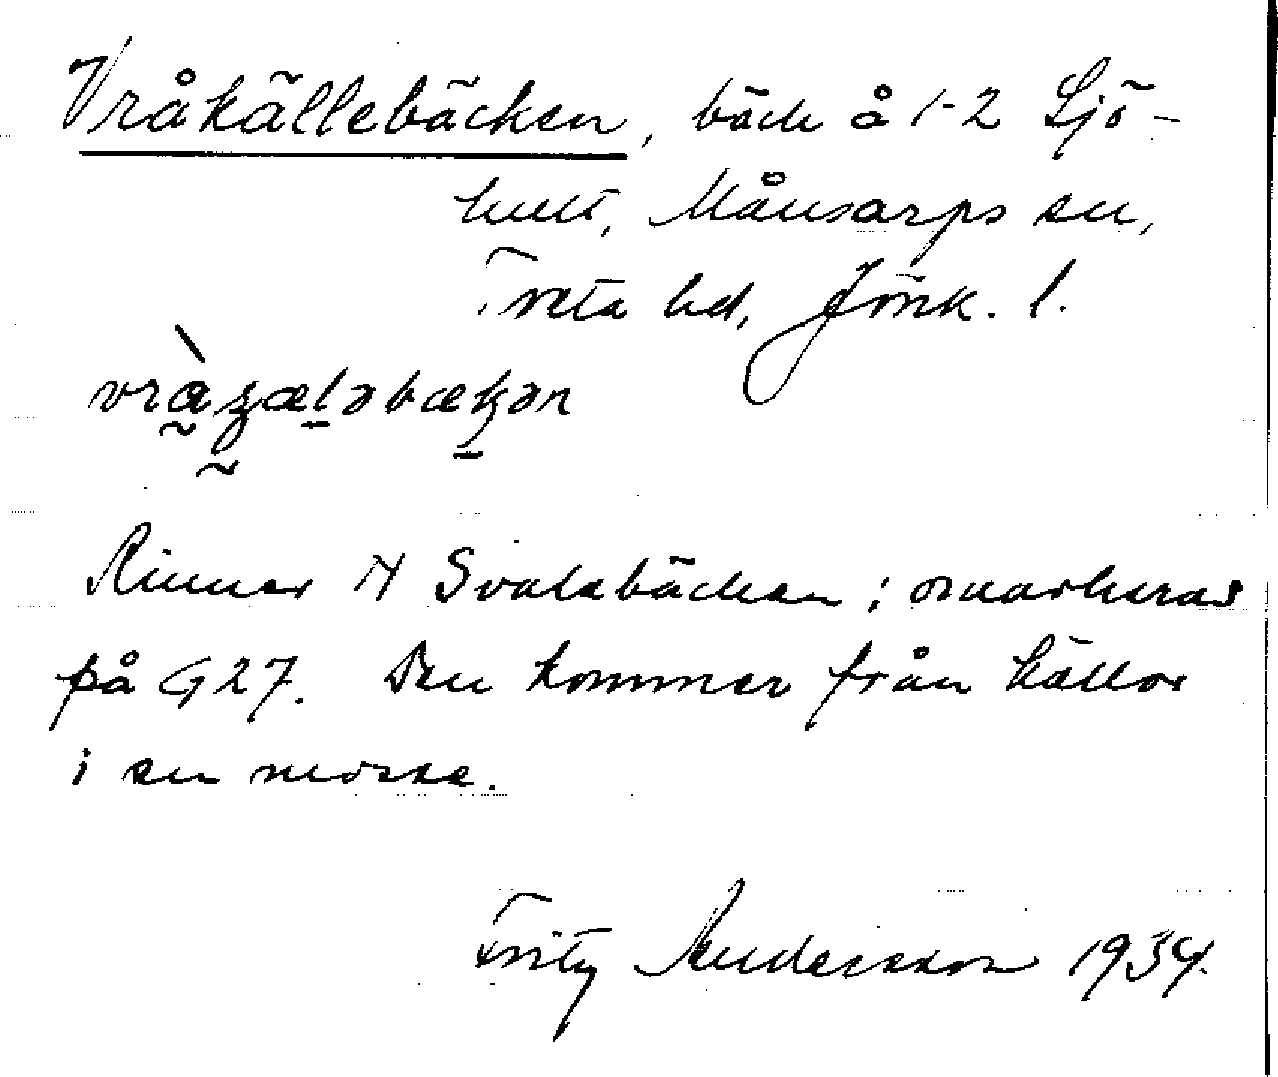 Vråkällebäcken, bäck å 1-2 Sjö-
hult, Månsarps sn,
Tveta hd, Jönk. l.
vràʒæləbækən
Rinner N Svalebäcken; omarkerad
på G27. Den kommer från källor
i en mosse.
Fritz Andersson 1934.